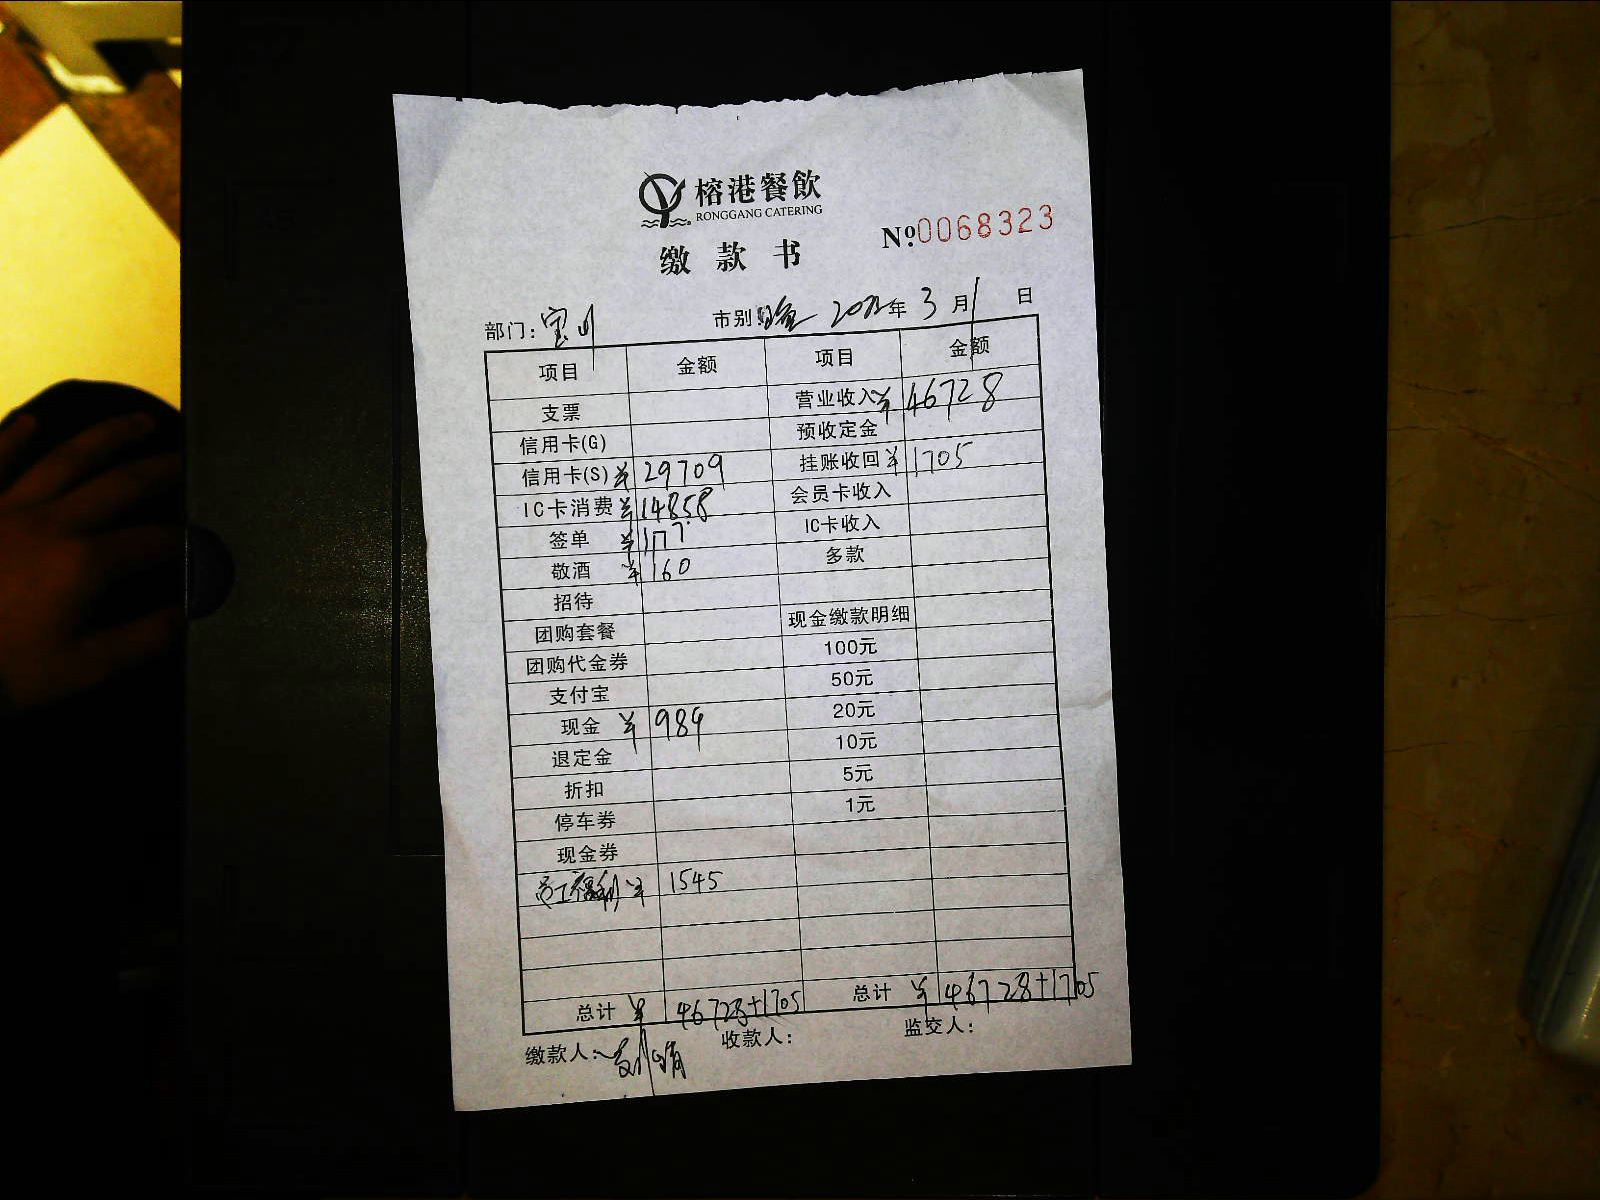 榕港餐飲
RONGGANG CATERING
缴款书
№:0068323
部门: 宝川 市别: 年 3 月 1 日
项目 金额 项目 金额
支票 营业收入 ¥ 46728
信用卡(G) 预收定金
信用卡(S) ¥ 29709 挂账收回 ¥ 1705
IC卡消费 ¥ 14858 会员卡收入
签单 ¥ 177 IC卡收入
敬酒 ¥ 160 多款
招待
团购套餐 现金缴款明细
团购代金券 100元
支付宝 50元
现金 ¥ 984 20元
退定金 10元
折扣 5元
停车券 1元
现金券
员工福利 ¥ 1545
总计 ¥ 46728+1705 总计 ¥ 46728+1705
缴款人: 收款人: 监交人: